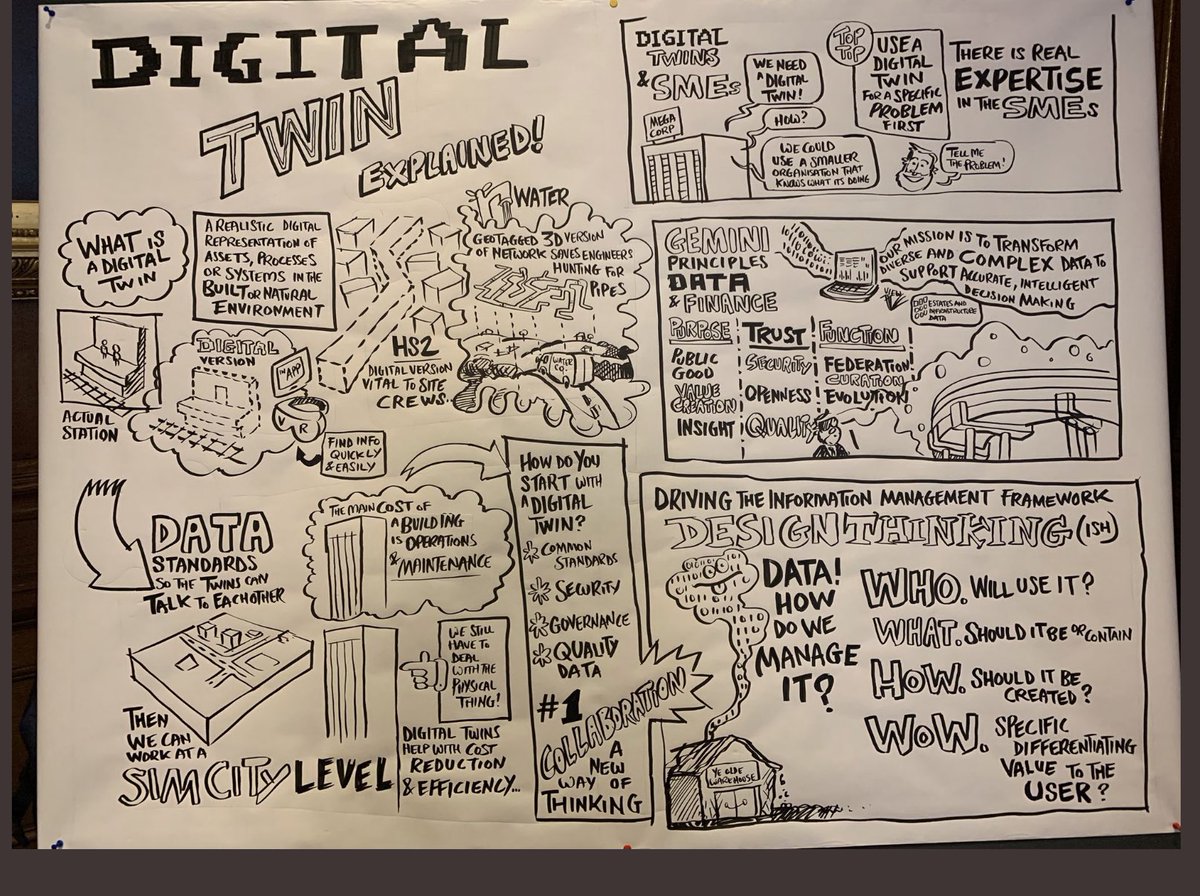 DIGITAL
TWIN
EXPLAINED!
WHAT IS
A DIGITAL
TWIN
A REALISTIC DIGITAL
REPRESENTATION OF
ASSETS, PROCESSES
OR SYSTEMS IN THE
BUILT OR NATURAL
ENVIRONMENT
ACTUAL
STATION
DIGITAL
VERSION
APP
R
FIND INFO
QUICKLY
& EASILY
HS2
DIGITAL VERSION
VITAL TO SITE
CREWS.
WATER
GEOTAGGED 3D VERSION
OF NETWORK SAVES ENGINEERS
HUNTING FOR
PIPES
WATER
CO.
DATA
STANDARDS
SO THE TWINS CAN
TALK TO EACHOTHER
THEN
WE CAN
WORK AT A
SIM CITY LEVEL
THE MAIN COST OF
A BUILDING
IS OPERATIONS
& MAINTENANCE
WE STILL
HAVE TO
DEAL
WITH THE
PHYSICAL
THING!
DIGITAL TWINS
HELP WITH COST
REDUCTION
& EFFICIENCY...
HOW DO YOU
START WITH
A DIGITAL
TWIN?
* COMMON
STANDARDS
* SECURITY
* GOVERNANCE
* QUALITY
DATA
#1
COLLABORATION
A
NEW
WAY OF
THINKING
DIGITAL
TWINS
& SMEs
MEGA
CORP
WE NEED
A DIGITAL
TWIN!
HOW?
WE COULD
USE A SMALLER
ORGANISATION THAT
KNOWS WHAT ITS DOING
TOP
TIP
USE A
DIGITAL
TWIN
FOR A SPECIFIC
PROBLEM
FIRST
TELL ME
THE PROBLEM!
THERE IS REAL
EXPERTISE
IN THE SMEs
GEMINI
PRINCIPLES
DATA
& FINANCE
PURPOSE
PUBLIC
GOOD
VALUE
CREATION
INSIGHT
TRUST
SECURITY
OPENNESS
QUALITY
FUNCTION
FEDERATION
CURATION
EVOLUTION
OUR MISSION IS TO TRANSFORM
DIVERSE AND COMPLEX DATA TO
SUPPORT ACCURATE, INTELLIGENT
DECISION MAKING
VIEW
ESTATES AND
INFRASTRUCTURE
DATA
DRIVING THE INFORMATION MANAGEMENT FRAMEWORK
DESIGN THINKING (ISH)
DATA!
HOW
DO WE
MANAGE
IT?
YE OLDE
WAREHOUSE
WHO. WILL USE IT?
WHAT. SHOULD IT BE OR CONTAIN
HOW. SHOULD IT BE
CREATED?
WOW. SPECIFIC
DIFFERENTIATING
VALUE TO THE
USER?